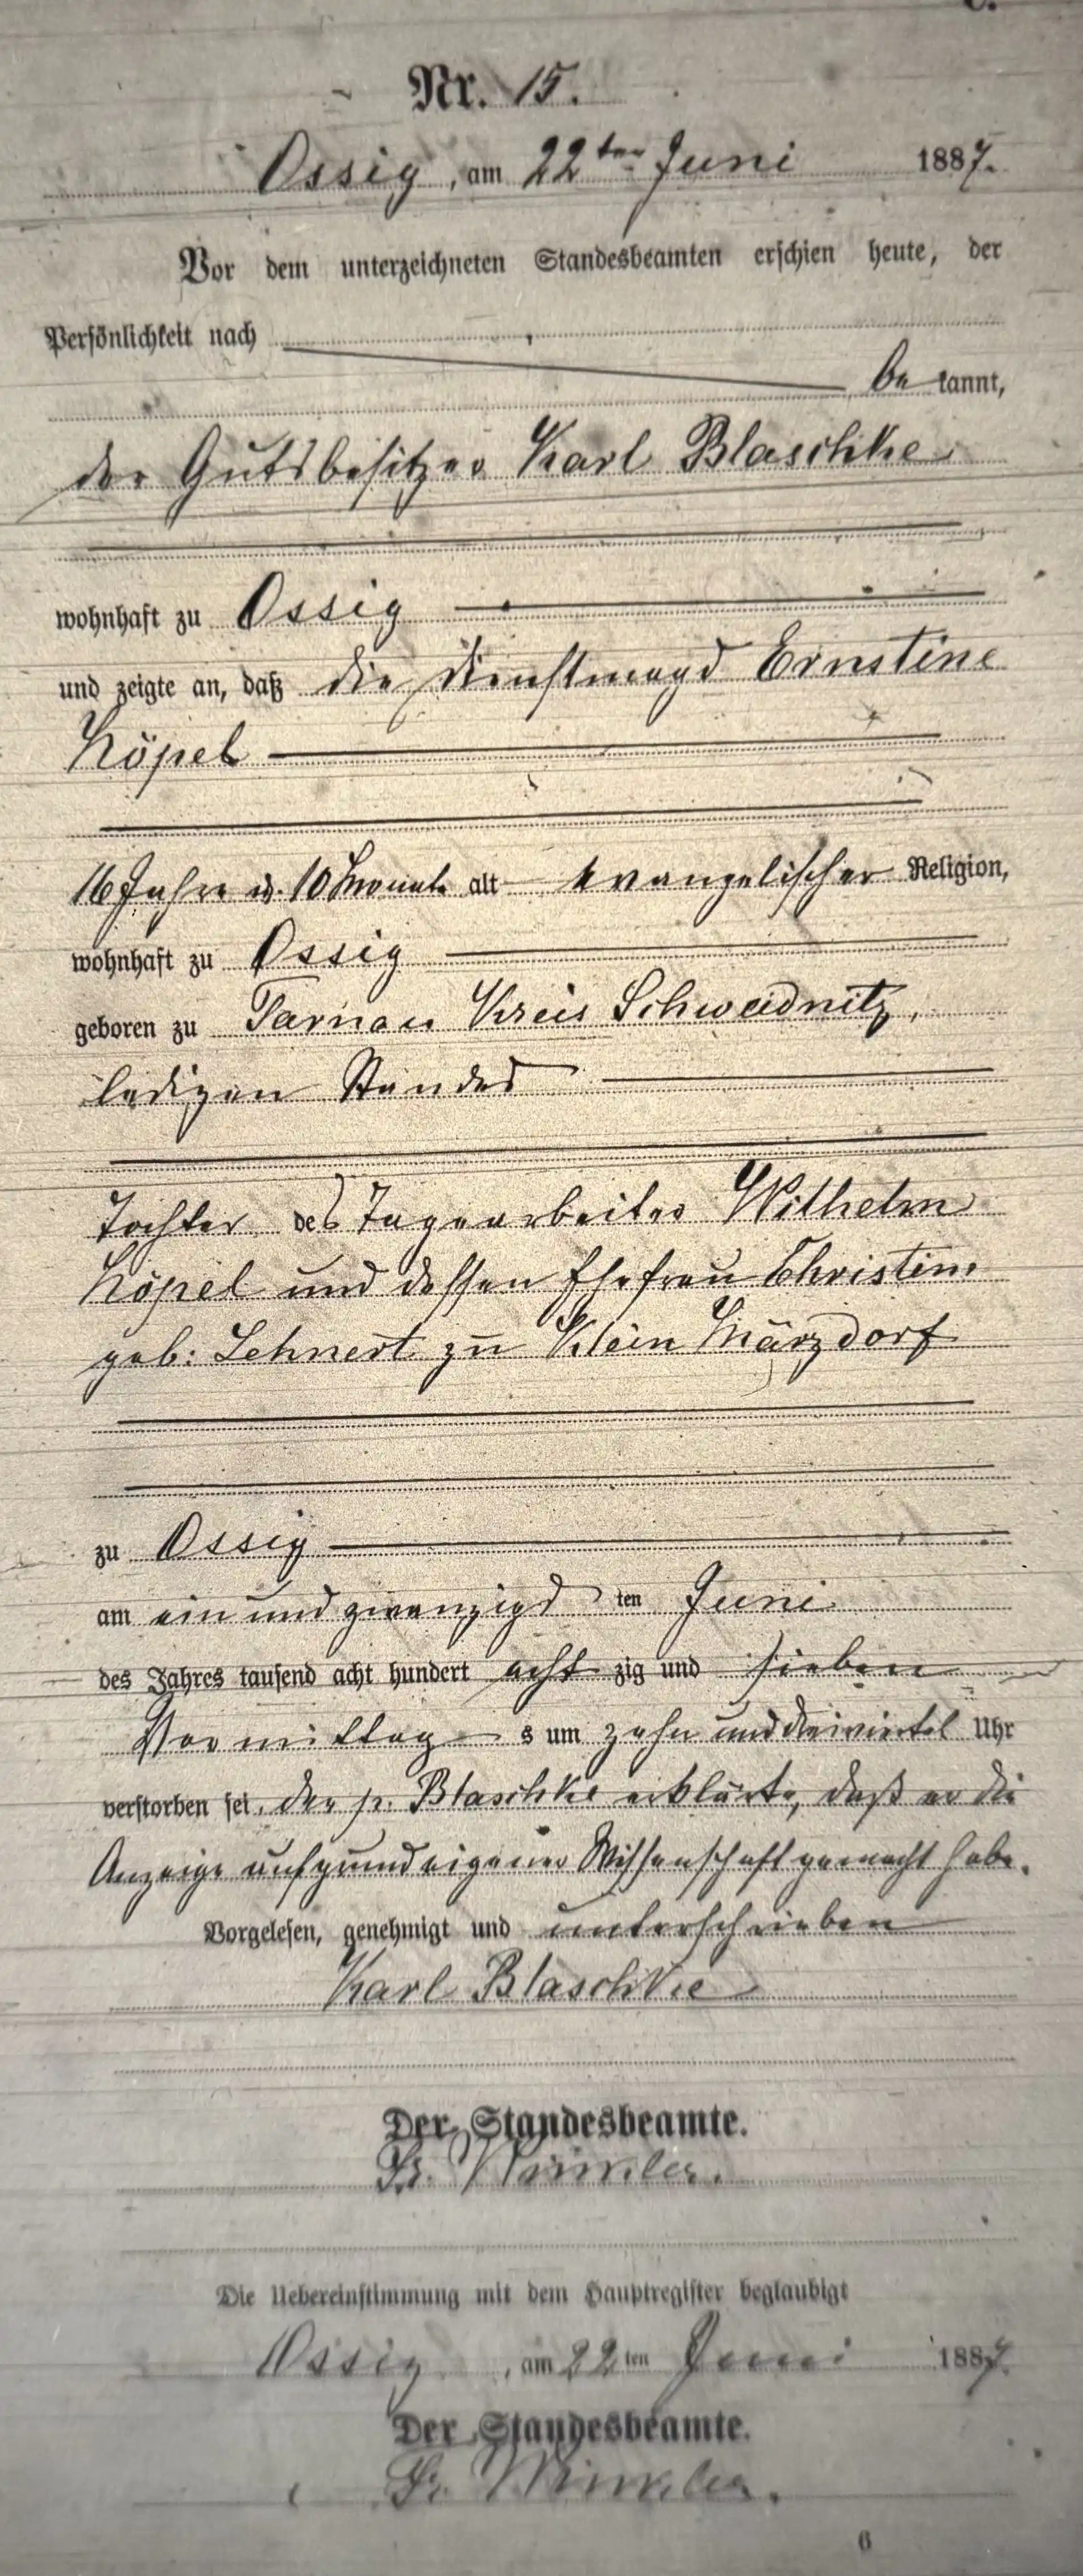 C.
Nr. 15.
Ossig, am 22ten Juni 1887.
Vor dem unterzeichneten Standesbeamten erschien heute, der
Persönlichkeit nach
be kannt,
der Gutsbesitzer Karl Blaschke
wohnhaft zu Ossig
und zeigte an, daß die Dienstmagd Ernstine
Köpel
16 Jahre u. 10 Monate alt evangelischer Religion,
wohnhaft zu Ossig
geboren zu Tarnau Kreis Schweidnitz,
ledigen Standes
Tochter des Tagearbeiter Wilhelm
Köpel und dessen Ehefrau Christine
geb: Lehnert zu Klein Märzdorf
zu Ossig
am ein und zwanzigs ten Juni
des Jahres tausend acht hundert acht zig und sieben
Vormittag s um zehn und dreiviertel Uhr
verstorben sei, der p. Blaschke erklärte, daß er die
Anzeige aufgrund eigener Wissenschaft gemacht habe.
Vorgelesen, genehmigt und unterschrieben
Karl Blaschke
Der Standesbeamte.
Fr. Winkler.
Die Uebereinstimmung mit dem Hauptregister beglaubigt
Ossig, am 22ten Juni 1887.
Der Standesbeamte.
Fr. Winkler.
6